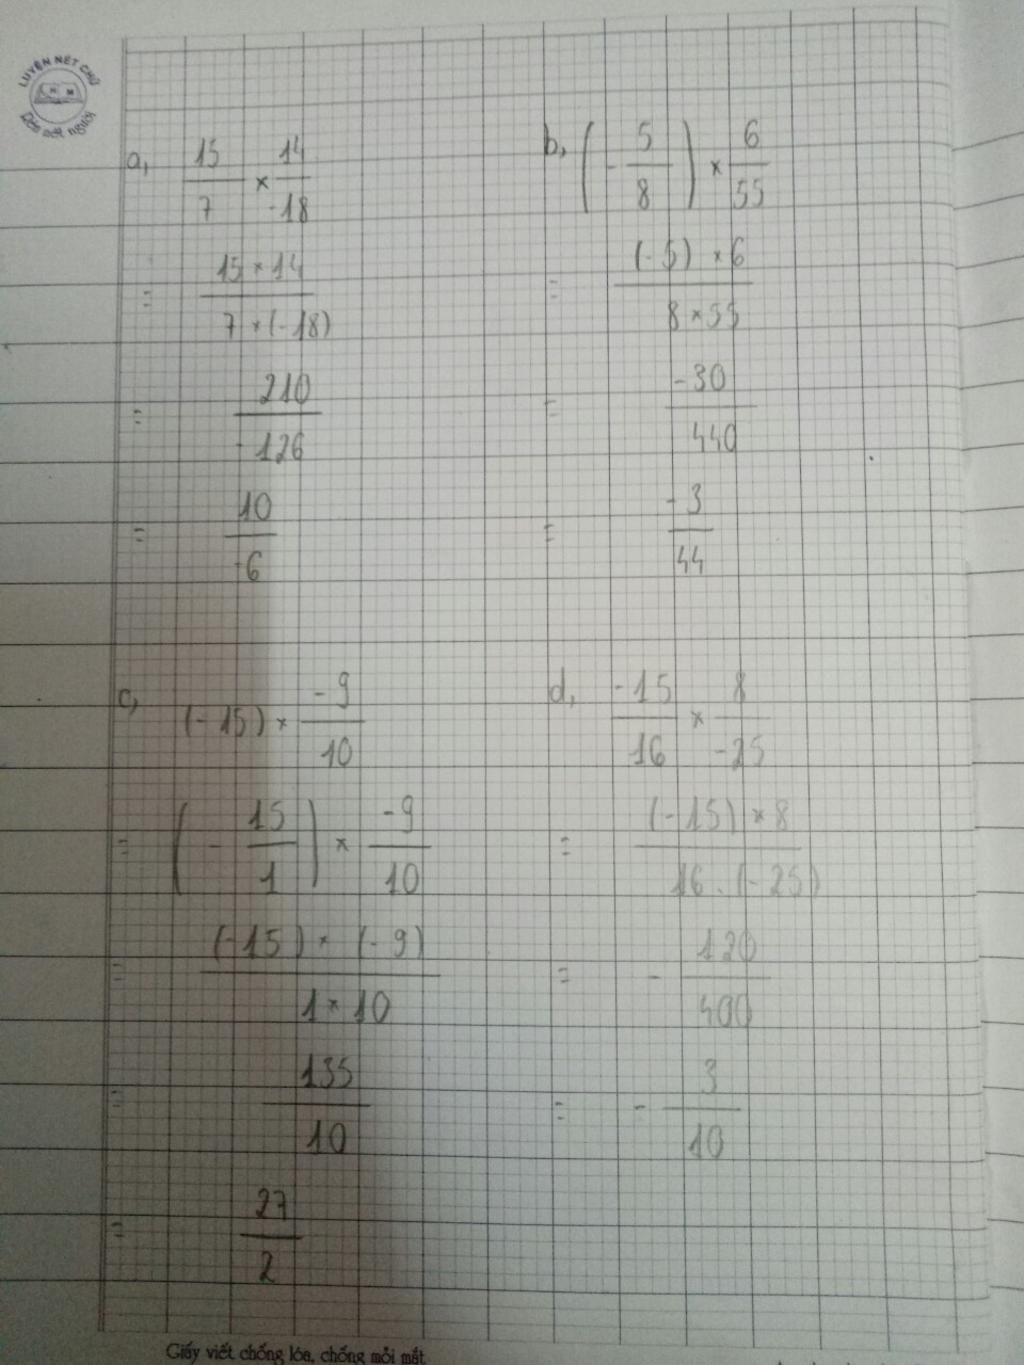 LUYỆN NÉT CHỮ
Rèn nết người
a, 15/7 × 14/-18
= 15 × 14 / 7 × (-18)
= 210/-126
= 10/-6
b, (- 5/8) × 6/55
= (-5) × 6 / 8 × 55
= -30/440
= -3/44
c, (-15) × -9/10
= (- 15/1) × -9/10
= (-15) × (-9) / 1 × 10
= 135/10
= 27/2
d, -15/16 × 8/-25
= (-15) × 8 / 16 . (-25)
= - 120/400
= - 3/10
Giấy viết chống lóa, chống mỏi mắt